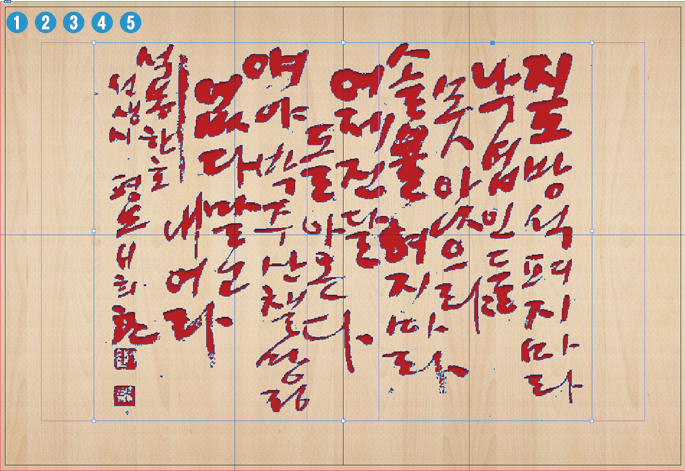 1 2 3 4 5
짚방석 지 마라
낙엽인들
못 앉으리
솔불 혀지 마라
어제 진 달
돌아온다
얘야 박주산챌망정
없다 말고
내어라
석봉 한호
선생시 평보 서희환